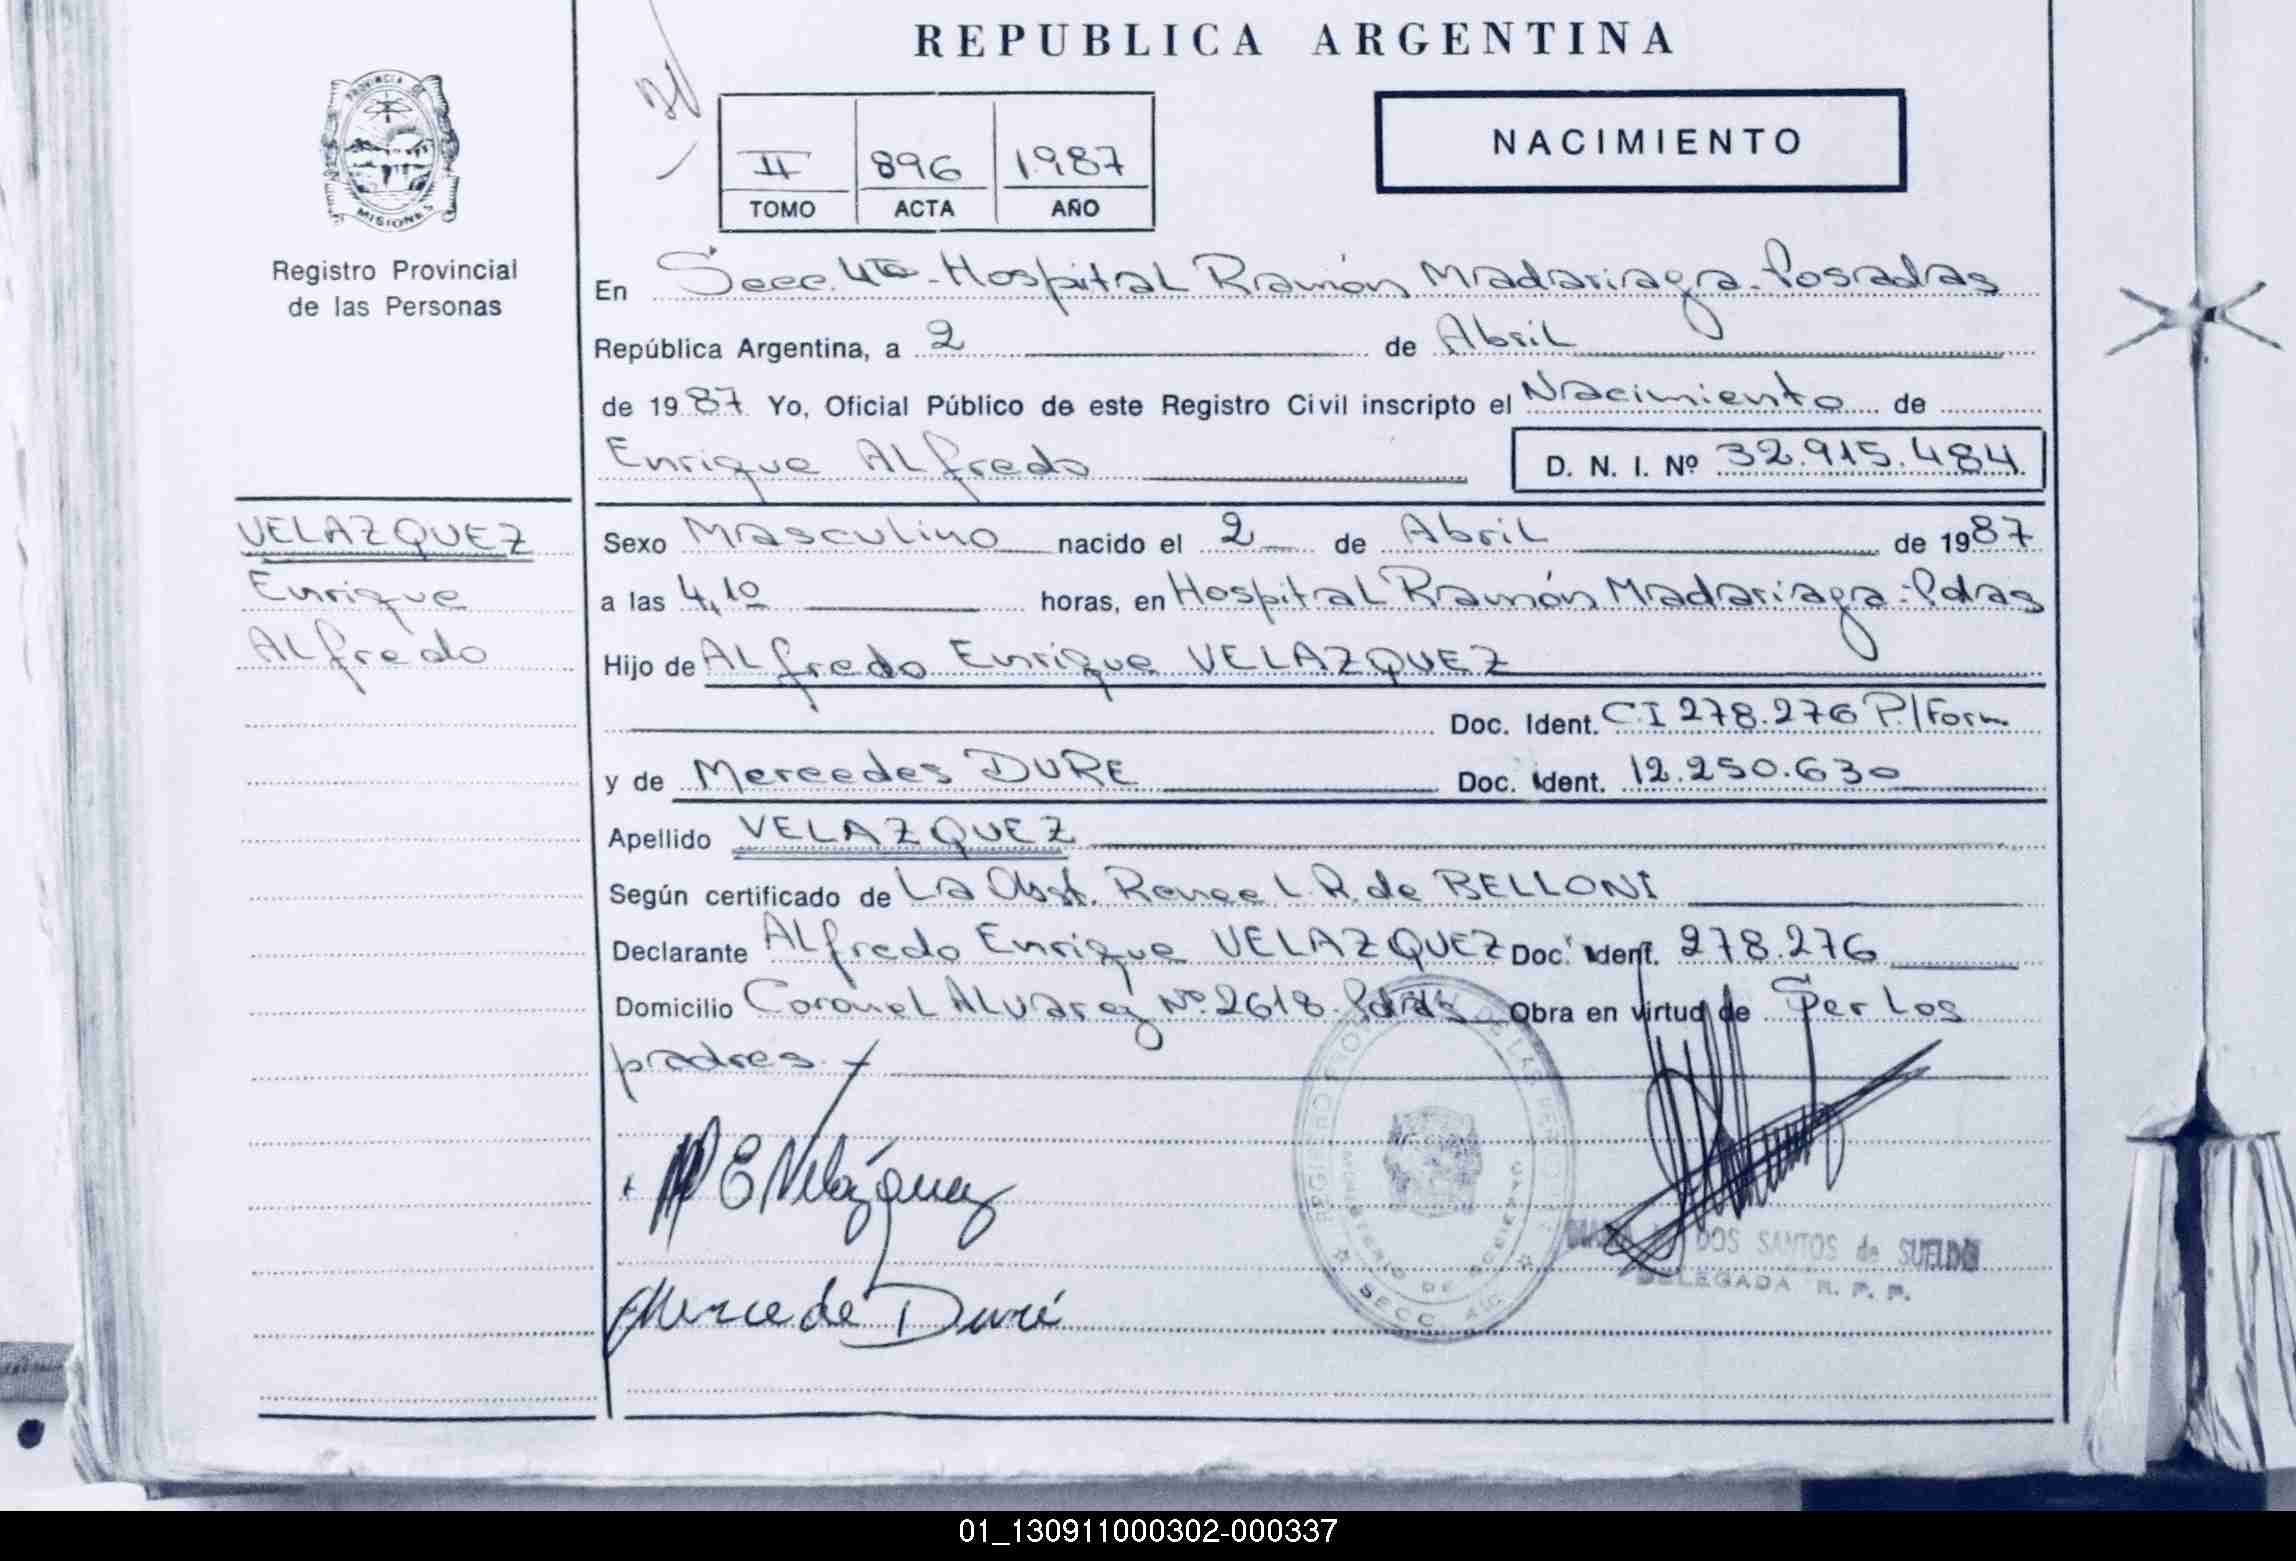 REPUBLICA ARGENTINA
PROVINCIA DE
MISIONES
Registro Provincial
de las Personas
II 896 1987
TOMO ACTA AÑO
NACIMIENTO
En Secc. 4ta - Hospital Ramón Madariaga - Posadas
República Argentina, a 2 de Abril
de 1987 Yo, Oficial Público de este Registro Civil inscripto el Nacimiento de
Enrique Alfredo D. N. I. Nº 32.915.484
VELAZQUEZ
Enrique
Alfredo
Sexo Masculino nacido el 2 de Abril de 1987
a las 4,10 horas, en Hospital Ramón Madariaga - Pdas
Hijo de Alfredo Enrique VELAZQUEZ
Doc. Ident. CI 278.276 P./Form.
y de Mercedes DURE Doc. Ident. 12.250.630
Apellido VELAZQUEZ
Según certificado de La Obst. Renee L. R. de BELLONI
Declarante Alfredo Enrique VELAZQUEZ Doc. Ident. 278.276
Domicilio Coronel Alvarez Nº 2618 - Pdas Obra en virtud de Ser los
padres.
E Velázquez
Mercede Duré
DOS SANTOS de SUELDO
DELEGADA R. P. P.
SECC. 4ta
01_130911000302-000337